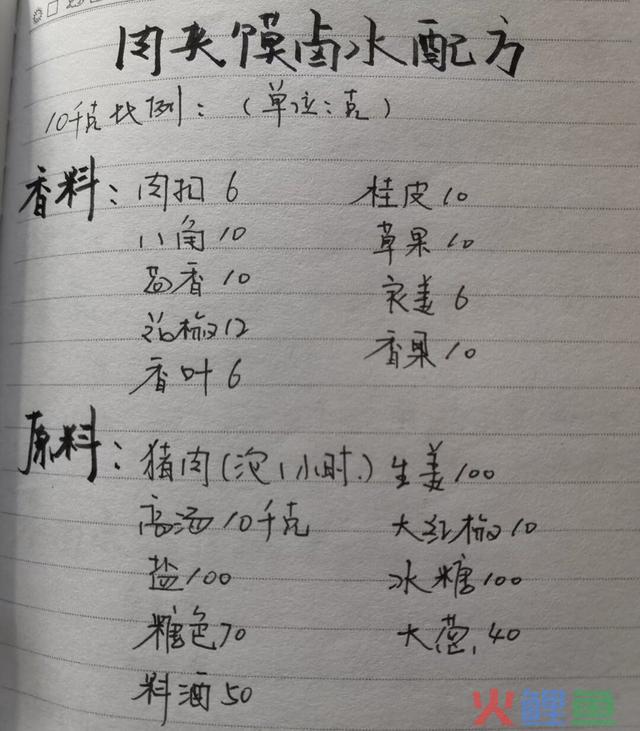 肉夹馍卤水配方
10千克比例：（单位：克）
香料：肉扣 6 桂皮 10
八角 10 草果 10
茴香 10 良姜 6
花椒 12 香果 10
香叶 6
原料：猪肉（泡1小时.）生姜 100
高汤 10千克 大红椒 10
盐 100 冰糖 100
糖色 70 大葱. 40
料酒 50
火鲤鱼